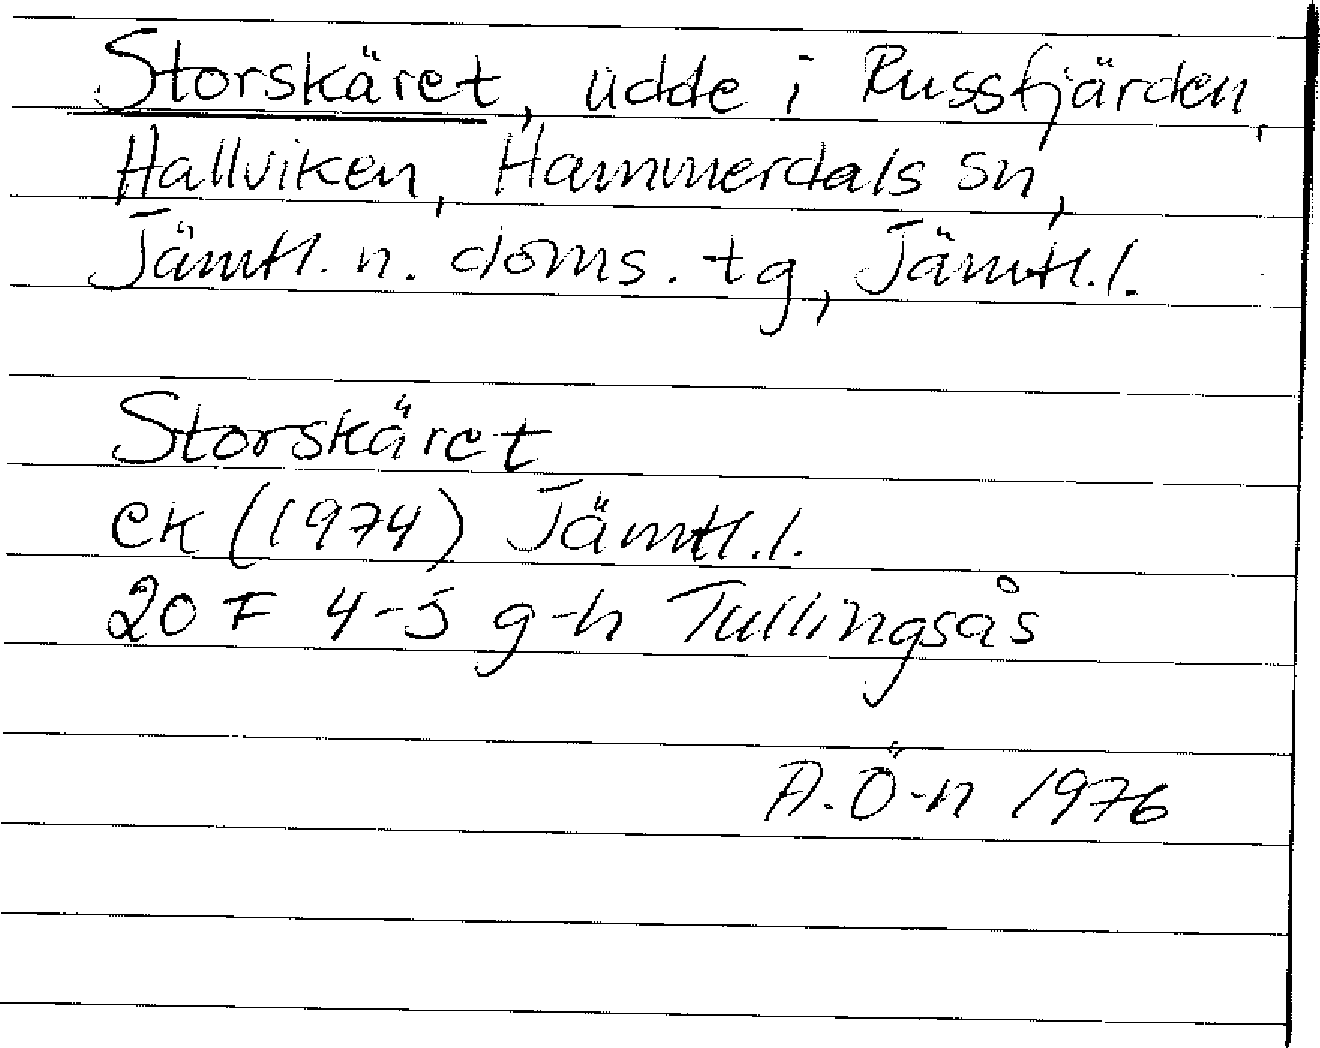 Storskäret, udde i Russfjärden,
Hallviken, Hammerdals sn,
Jämtl. n. doms. tg, Jämtl.l.
Storskäret
ek (1974) Jämtl.l.
20 F 4-5 g-h Tullingsås
A.Ö-n 1976